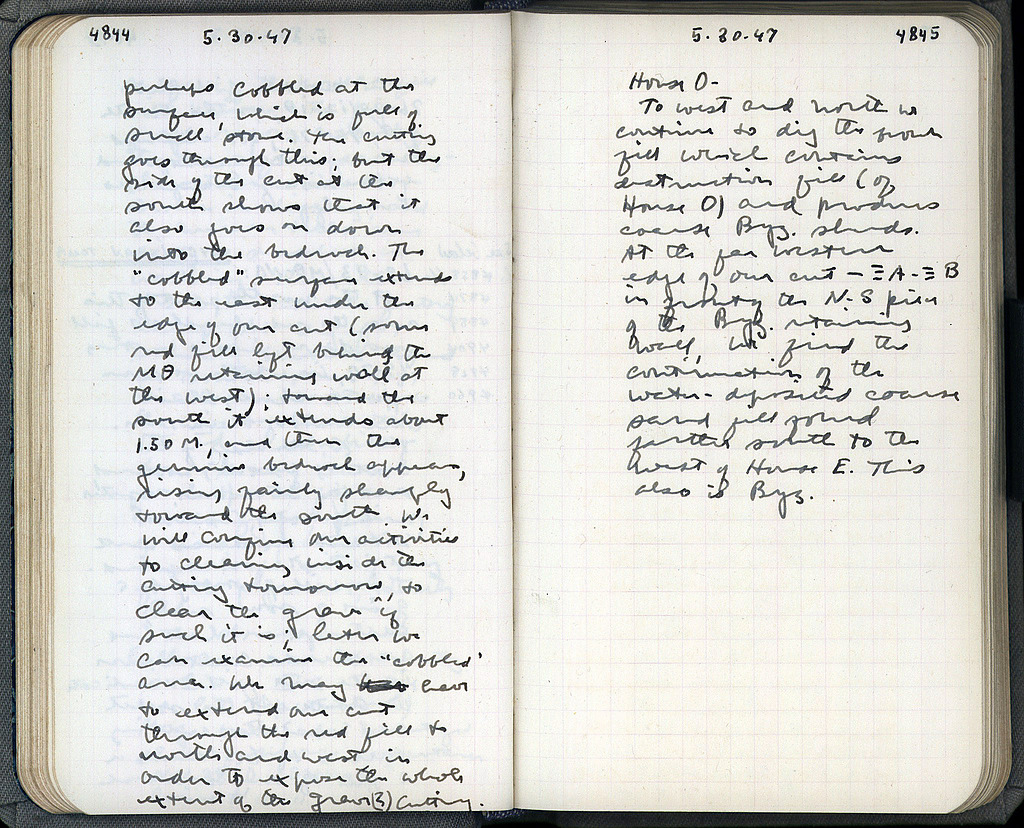 4844 5·30·47
perhaps cobbled at the
surface, which is full of
small stone. The cutting
goes through this; but the
side of the cut at the
south shows that it
also goes on down
into the bedrock. The
"cobbled" surface extends
to the east under the
edge of our cut (some
red fill left behind the
MΘ retaining wall at
the west); toward the
south it extends about
1.50 M, and then the
genuine bedrock appears,
rising fairly sharply
toward the south. We
will confine our activities
to cleaning inside the
cutting tomorrow, to
clear the grave if
such it is; later we
can examine the "cobbled"
area. We may have
to extend our cut
through the red fill to
north and west in
order to expose the whole
extent of the grave(?) cutting.
5·30·47 4845
House O-
To west and north we
continue to dig the
fill which contains
destruction fill (of
House O) and produces
coarse Byz. sherds.
At the far western
edge of our cut - ΞA-ΞB
in the N-S pier
of the Byz. retaining
wall, we find the
continuation of the
water-deposited coarse
sand fill found
farther south to the
west of House E. This
also is Byz.